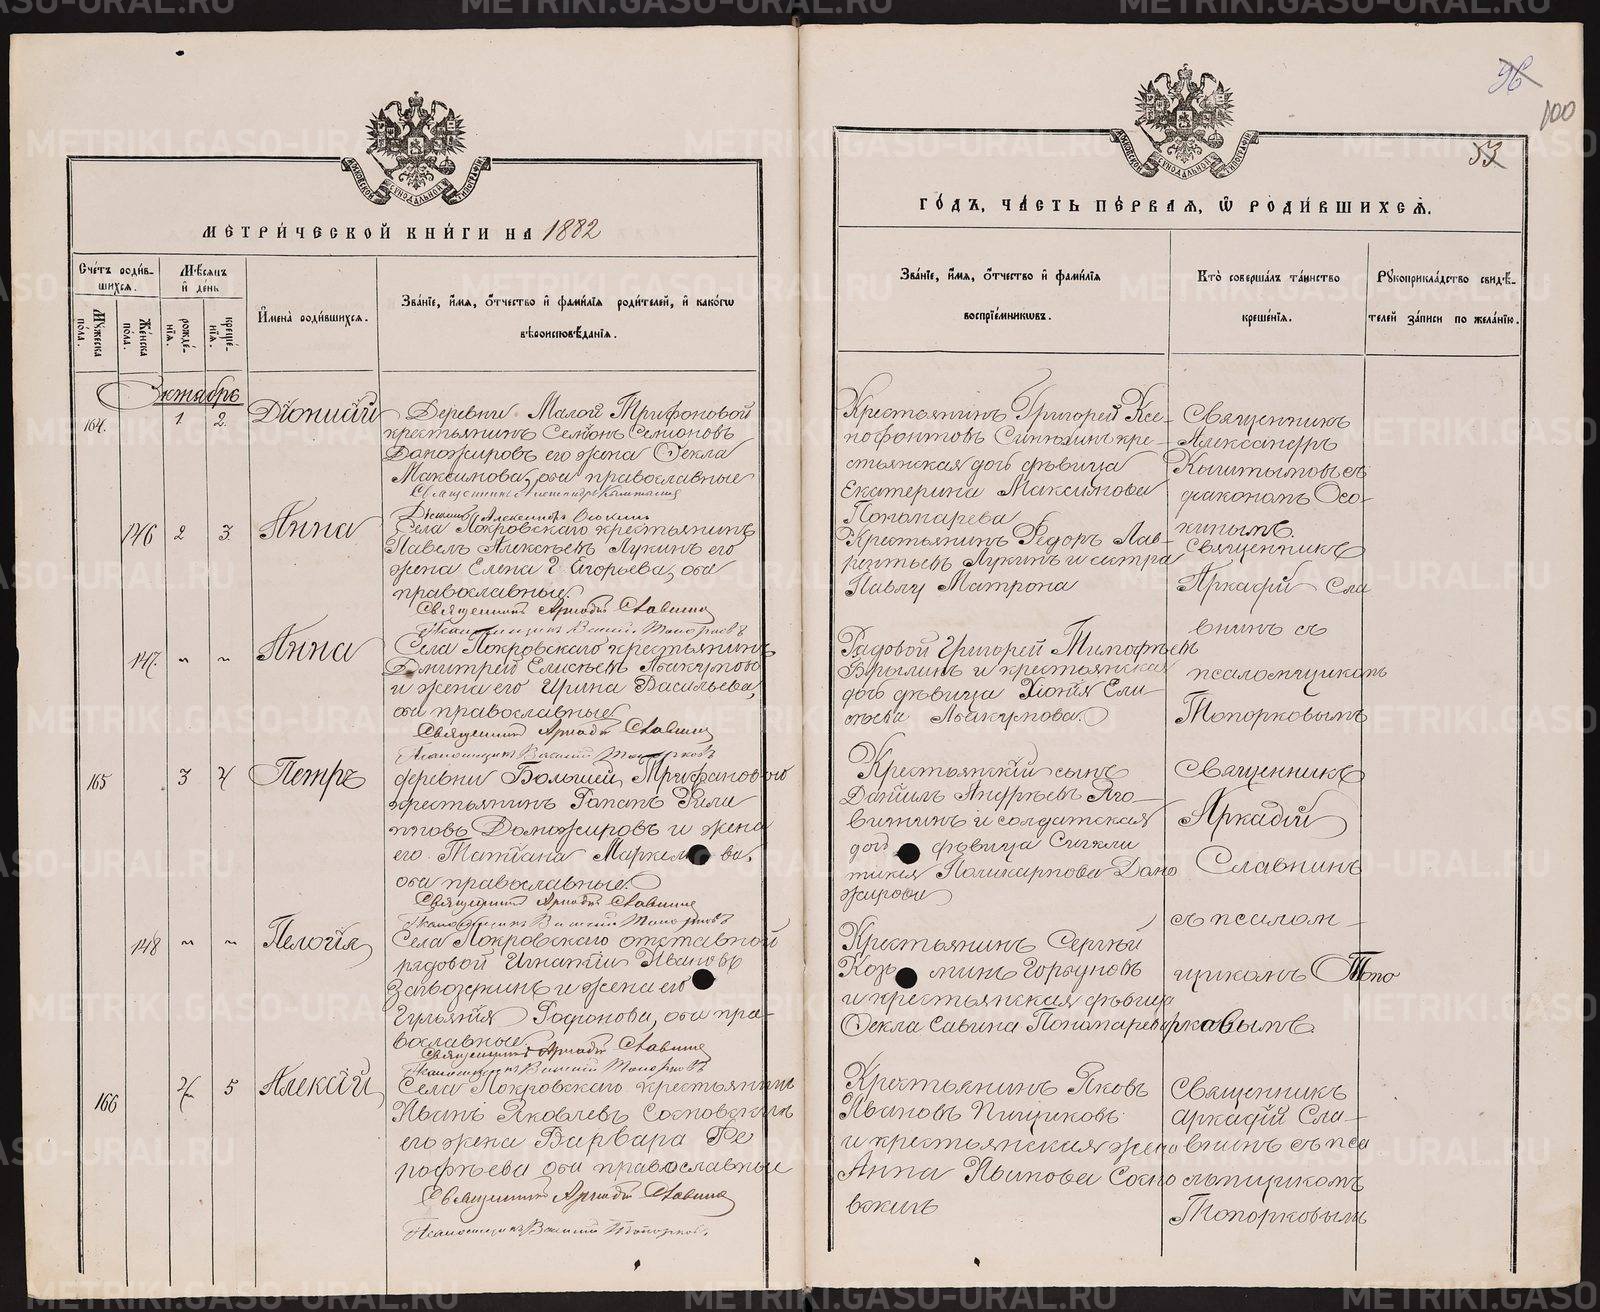 МЕТРИ́ЧЕСКОЙ КНИ́ГИ НА 1882
Сче́тъ роди́в-
шихся.
Мѣ́сяцъ
и҆ день
Му́жеска
по́ла.
Же́нска
по́ла.
рожде́-
нїѧ.
креще́-
нїѧ.
И҆мена̀ роди́вшихся.
Зва́нїе, и҆́мя, ѻ҆́тчество и҆ фами́лїя роди́телей, и҆ како́гѡ
вѣроисповѣ́данїя.
Октябрь
164. 1 2. Діонисій
Деревни Малой Трифоновой
крестьянинъ Семіонъ Семионовъ
Доможировъ его жена Ѳекла
Максимова, оба православные
146 2 3 Анна
Села Покровскаго крестьянинъ
Павелъ Алексѣевъ Лукинъ его
жена Елена Егорьева, оба
православные.
Священникъ Аркадій Славнинъ
Псаломщикъ Василій Топорковъ
147. " " Анна
Села Покровскаго крестьянинъ
Дмитрій Елисѣевъ Абакумовъ
и жена его Ирина Васильева,
оба православные
Священникъ Аркадій Славнинъ
Псаломщикъ Василій Топорковъ
165 3 4 Петръ
деревни Большей Трифановой
крестьянинъ Потапъ Фили
повъ Доможировъ и жена
его Татіана Маркело ва,
оба православные.
Священникъ Аркадій Славнинъ
Псаломщикъ Василій Топорковъ
148 " " Пелогія
Села Покровскаго отставной
рядовой Игнатій Ивановъ
и жена его
Іульянія оба пра-
вославные
Священникъ Аркадій Славнинъ
Псаломщикъ Василій Топорковъ
166 4 5 Алексій
Села Покровскаго крестьянинъ
Иванъ Яковлевъ Сосновскихъ
его жена Варвара Фе
рофѣева оба православные
Священникъ Аркадій Славнинъ
Псаломщикъ Василій Топорковъ.
96
100
53
ГО́ДЪ, ЧА́СТЬ ПЕ́РВАЯ, Ѡ҆ РОДИ́ВШИХСЯ.
Зва́нїе, и҆́мя, ѻ҆́тчество и҆ фами́лїя
воспрїе́мниковъ.
Кто̀ соверша́лъ та́инство
креще́нїя.
Рꙋкоприкла́дство свидѣ́-
телей за́писи по жела́нїю.
Крестьянинъ Григорей Ксе-
нофонтовъ кре-
стьянская дочь дѣвица
Екатерина Максимова
Пономарева
Священникъ
Александръ
Кыштымовъ съ
діакономъ Осо-
кинымъ.
Крестьянинъ Ѳедоръ Лав-
рентьевъ Лукинъ и сестра
Павлу Матрона
Священникъ
Аркадій Сла
внинъ съ
псаломщикомъ
Топорковымъ
Рядовой Григорей Тимофѣевъ
Брылинъ и крестьянская
дочь дѣвица Хіонія Ели
сѣева Абакумова.
Крестьянскій сынъ
Даніилъ Андрѣевъ Яго-
витинъ и солдатская
дочь дѣвица Сигкли
тикія Поликарпова Домо
жирова
Священникъ
Аркадій
Славнинъ
съ псалом-
щикомъ Топо
рковымъ.
Крестьянинъ Сергѣй
Козь минъ Горбуновъ
и крестьянская дѣвица
Ѳекла Савина Пономарева
Крестьянинъ Яковъ
Ивановъ Пищиковъ
и крестьянская жена
Анна Иванова Сосно
вскихъ
Священникъ
Аркадій Сла-
внинъ съ пса
ломщикомъ
Топорковымъ
METRIKI.GASO-URAL.RU